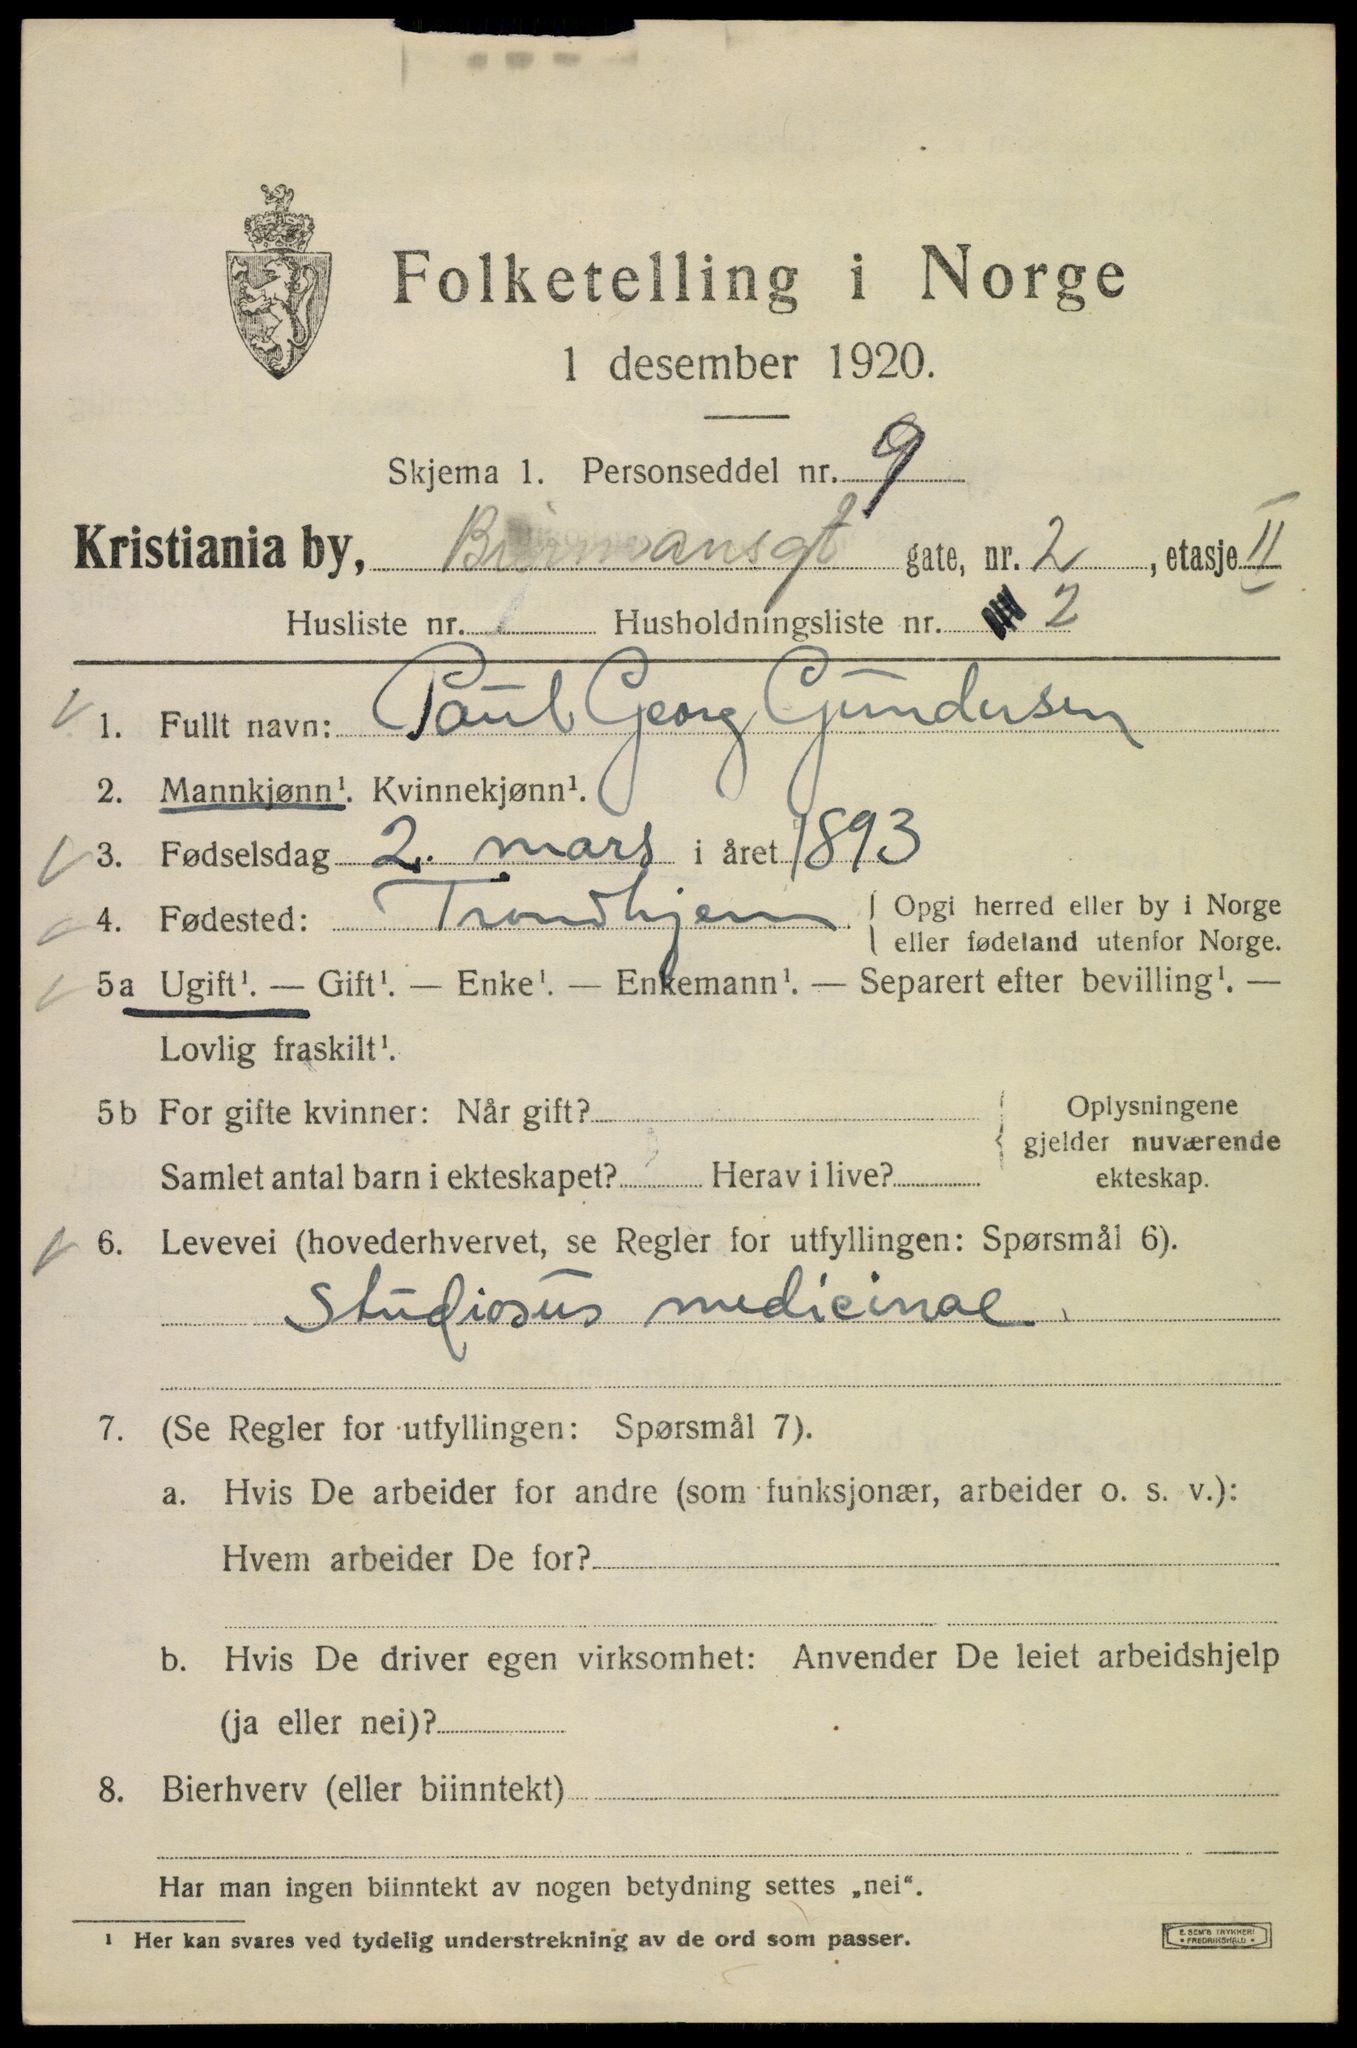 Folketelling i Norge
1 desember 1920.
Skjema 1. Personseddel nr. 9
Kristiania by, gate, nr. 2, etasje II
Husliste nr. 1 Husholdningsliste nr. 2
1. Fullt navn: Paul Georg Gundersen
2. Mannkjønn¹. Kvinnekjønn¹.
3. Fødselsdag 2. mars i året 1893
4. Fødested: Trondhjem { Opgi herred eller by i Norge
eller fødeland utenfor Norge.
5a Ugift¹. — Gift¹. — Enke¹. — Enkemann¹. — Separert efter bevilling¹. —
Lovlig fraskilt¹.
5b For gifte kvinner: Når gift? { Oplysningene
gjelder nuværende
Samlet antal barn i ekteskapet? Herav i live? ekteskap.
6. Levevei (hovederhvervet, se Regler for utfyllingen: Spørsmål 6).
Studiosus medicinae
7. (Se Regler for utfyllingen: Spørsmål 7).
a. Hvis De arbeider for andre (som funksjonær, arbeider o. s. v.):
Hvem arbeider De for?
b. Hvis De driver egen virksomhet: Anvender De leiet arbeidshjelp
(ja eller nei)?
8. Bierhverv (eller biinntekt)
Har man ingen biinntekt av nogen betydning settes „nei“.
¹ Her kan svares ved tydelig understrekning av de ord som passer.
E. SEM'S TRYKKERI
• FREDRIKSHALD •